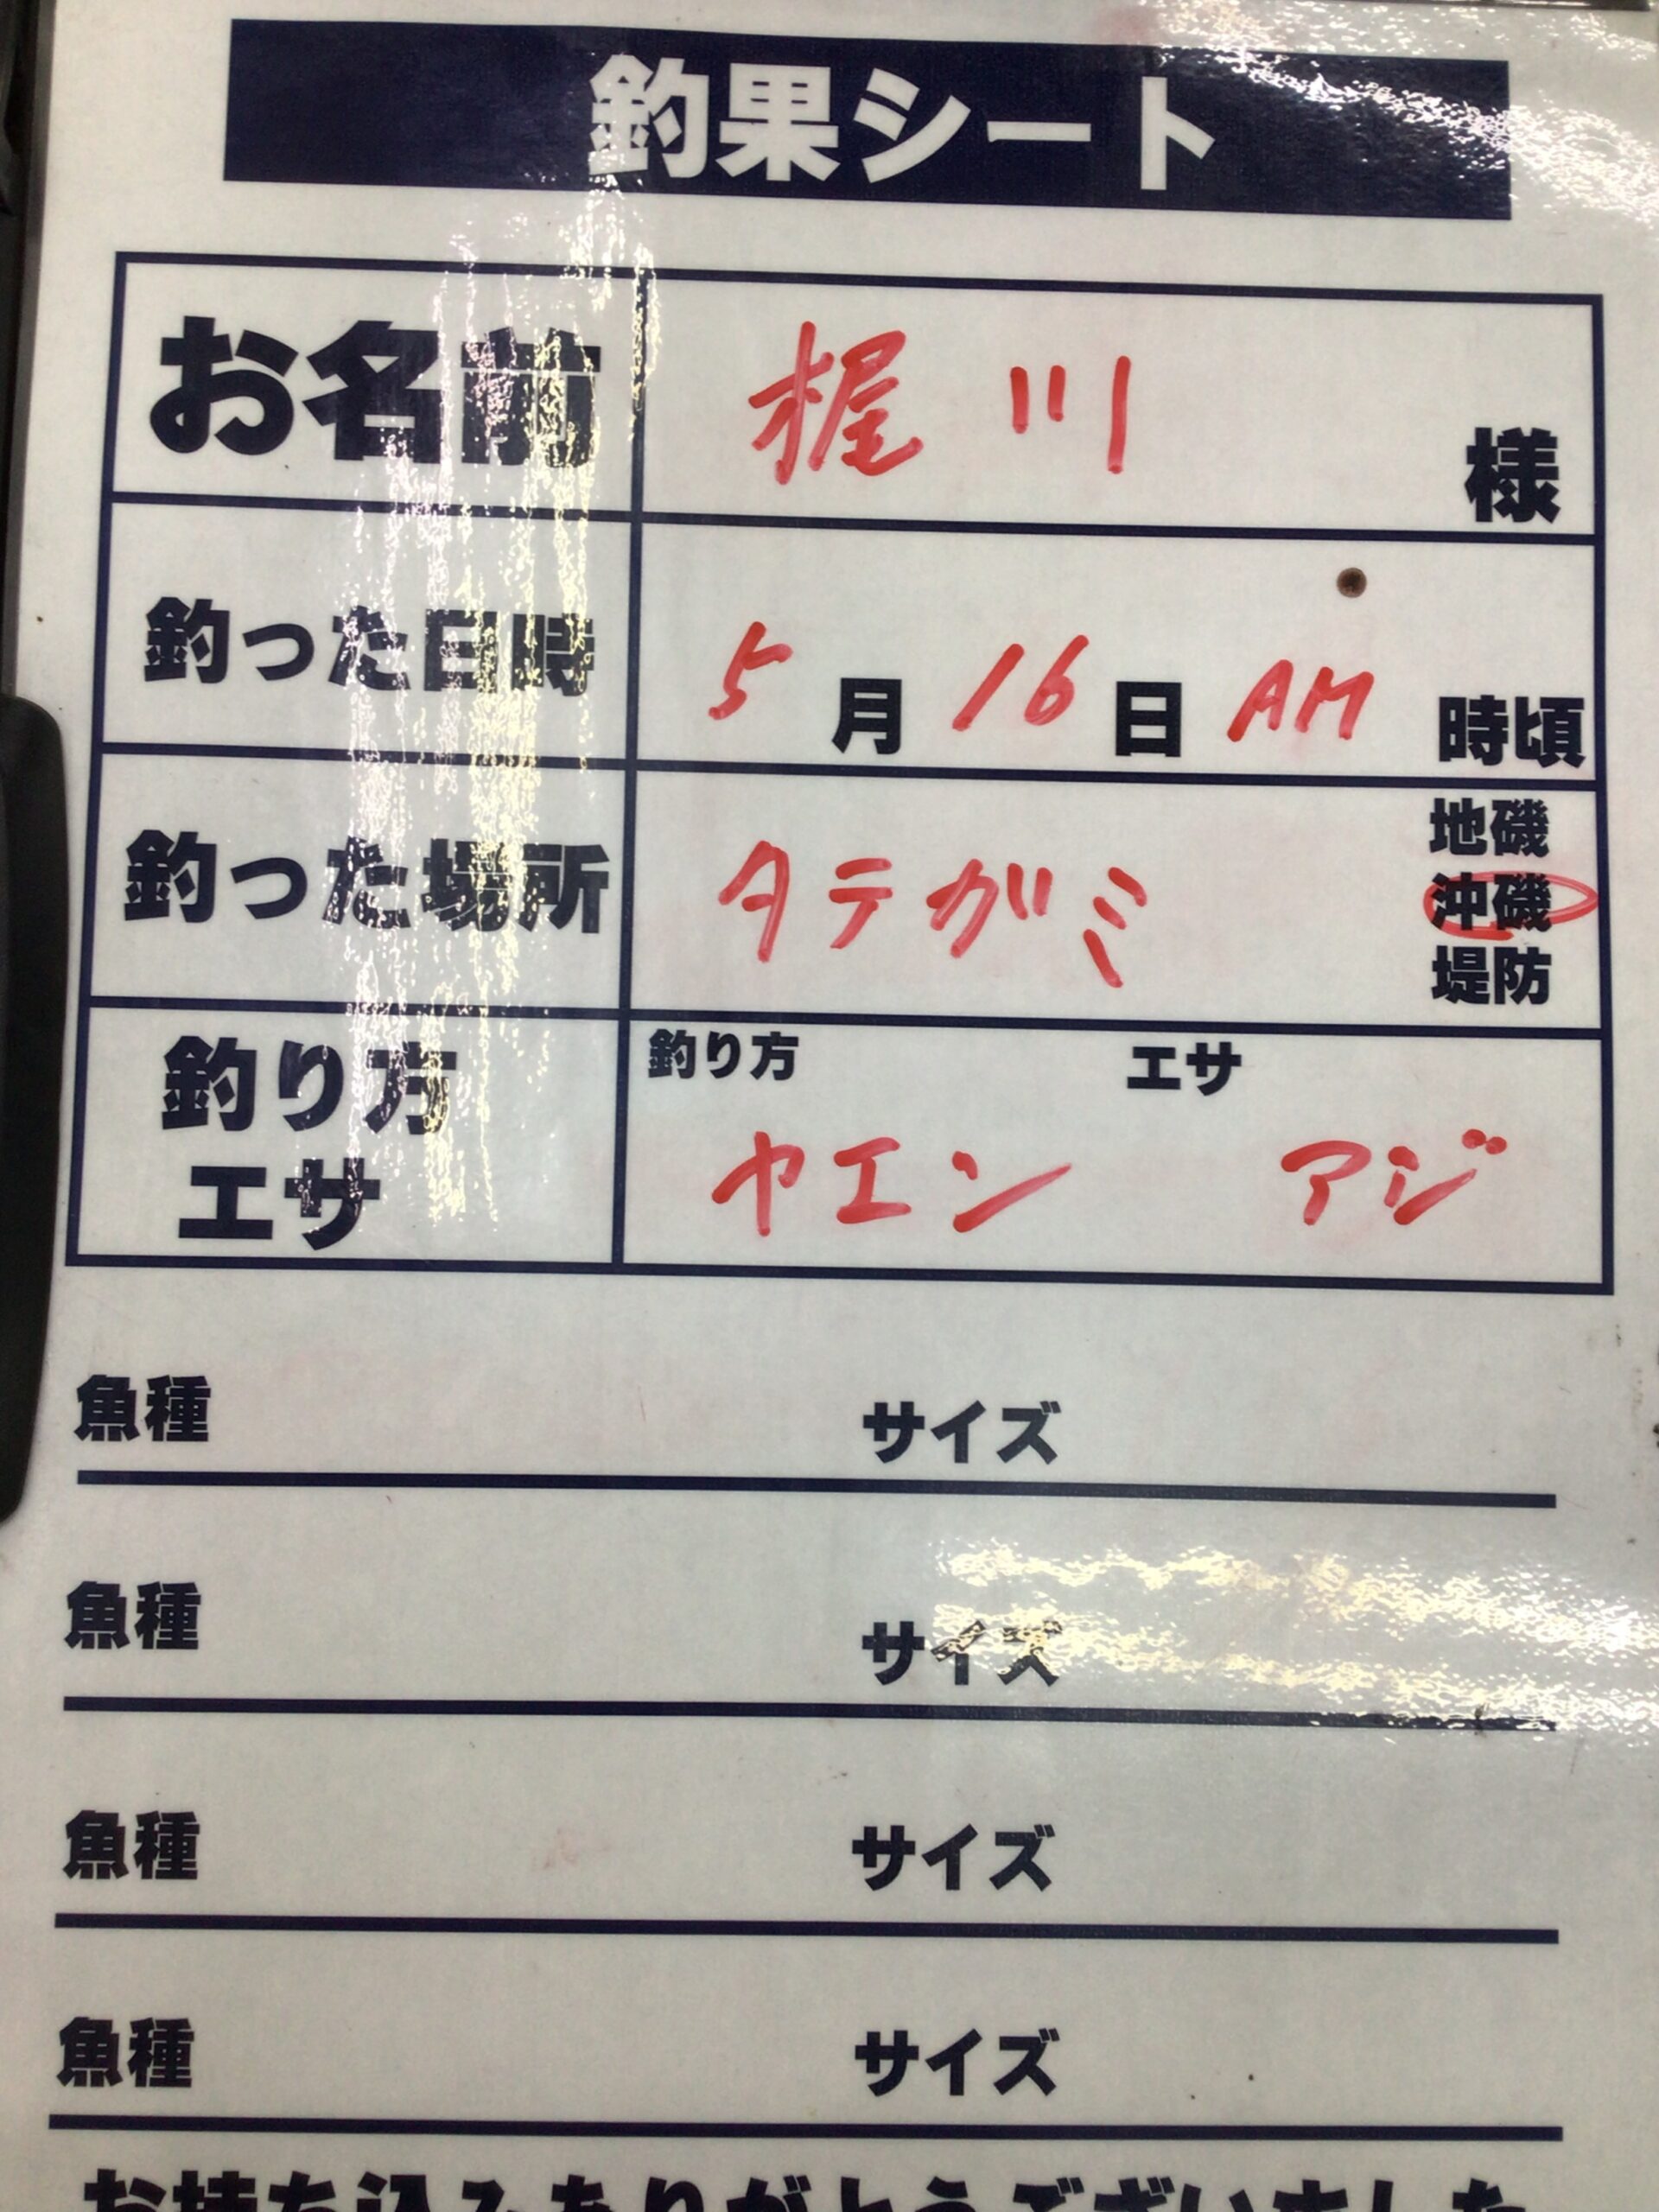 釣果シート
お名前 梶川 様
釣った日時 5月16日 AM 時頃
釣った場所 タテガミ 地磯
沖磯
堤防
釣り方 エサ
釣り方
エサ
ヤエン アジ
魚種 サイズ
魚種 サイズ
魚種 サイズ
魚種 サイズ
お持ち込みありがとうございました